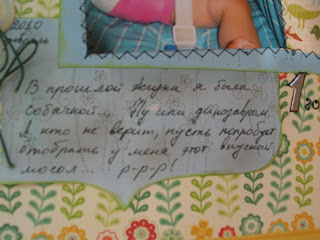 2010
В прошлой жизни я была
собачкой. Ну или динозавром.
А кто не верит, пусть попробует
отобрать у меня этот вкусный
мосол... р-р-р!
1